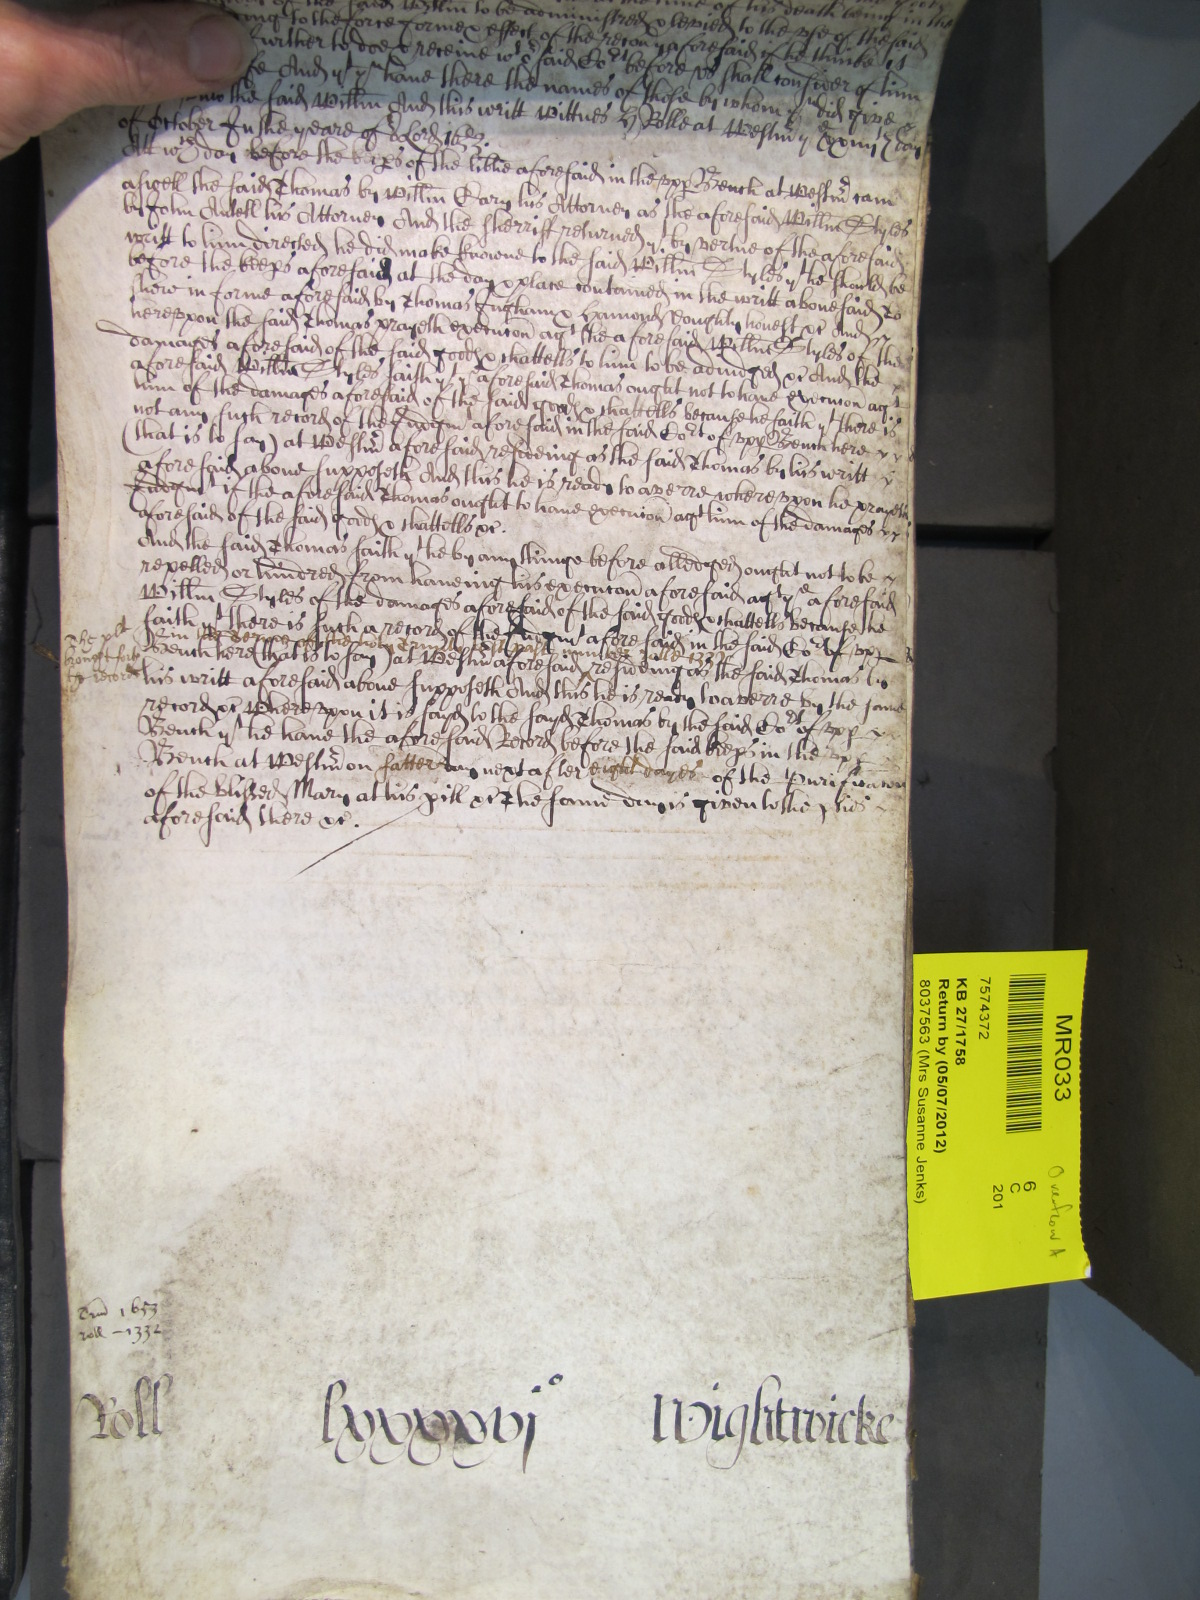 of the said Willm to be administred & levied to the use of the said
to the force forme & effect of the recovy aforesaid if he thinke it
further to doe & receive wt ye said Cort before us shall consider of him
And yt yu have there the names of those by whom yu did give
unto the said Willm And this writt Wittnes H Rolle at Westmr ye xxiiijth day
of October In the yeare of or Lord 1653.
Att wch day before the keeps of the libtie aforesaid in the upp Bench at Westmr came
aswell the said Thomas by Willm Cary his Attorney as the aforesaid Willm Styles
by John Axtell his Attorney And the sherriff returned yt by vertue of the aforesaid
writt to him directed he did make knowne to the said Willm Styles yt he should be
before the keeps aforesaid at the day & place contained in the writt abovesaid to
shew in forme aforesaid by Thomas Ingham & Hamond Doughty honest &c And
hereupon the said Thomas prayeth execucon agt the aforesaid Willm Styles of the
damages aforesaid of the said goods & chattells to him to be adiudged &c And the
aforesaid Willm Styles saith yt ye aforesaid Thomas ought not to have execucon agt
him of the damages aforesaid of the said goods & chattells because he saith yt there is
not any such record of the Judgmt aforesaid in the said Cort of upp Bench here
(that is to say) at Westmr aforesaid residing as the said Thomas by his writt
aforesaid above supposeth And this he is ready to averre whereupon he prayeth
Judgmt if the aforesaid Thomas ought to have execucon agt him of the damages
aforesaid of the said goods & chattells &c.
And the said Thomas saith yt he by any thinge before alledged ought not to be
repelled or hindred from haveing his execucon aforesaid agt ye aforesaid
Willm Styles of the damages aforesaid of the said goods & chattells because he
saith yt there is such a record of the Judgmt aforesaid in the said Cort of upp
The plt
brought forth
ye record
Bench here (that is to say) at Westmr aforesaid residing as the said Thomas by
his writt aforesaid above supposeth And this he is ready to averre by the same
record &c Whereupon it is sayd to the sayd Thomas by the said Cort of upp
Bench yt he have the aforesaid Record before the said keeps in the upp
Bench at Westmr on Satterday next after eight dayes of the Purificacon
of the blessed Mary at his pill &c The same day is given to the pties
aforesaid there &c.
Trin 1653
roll - 1332
Roll lxxxxvjo Wightwicke
MR033
7574372
KB 27/1758
Return by (05/07/2012)
8037563 (Mrs Susanne Jenks)
6
C
201
Overflow A